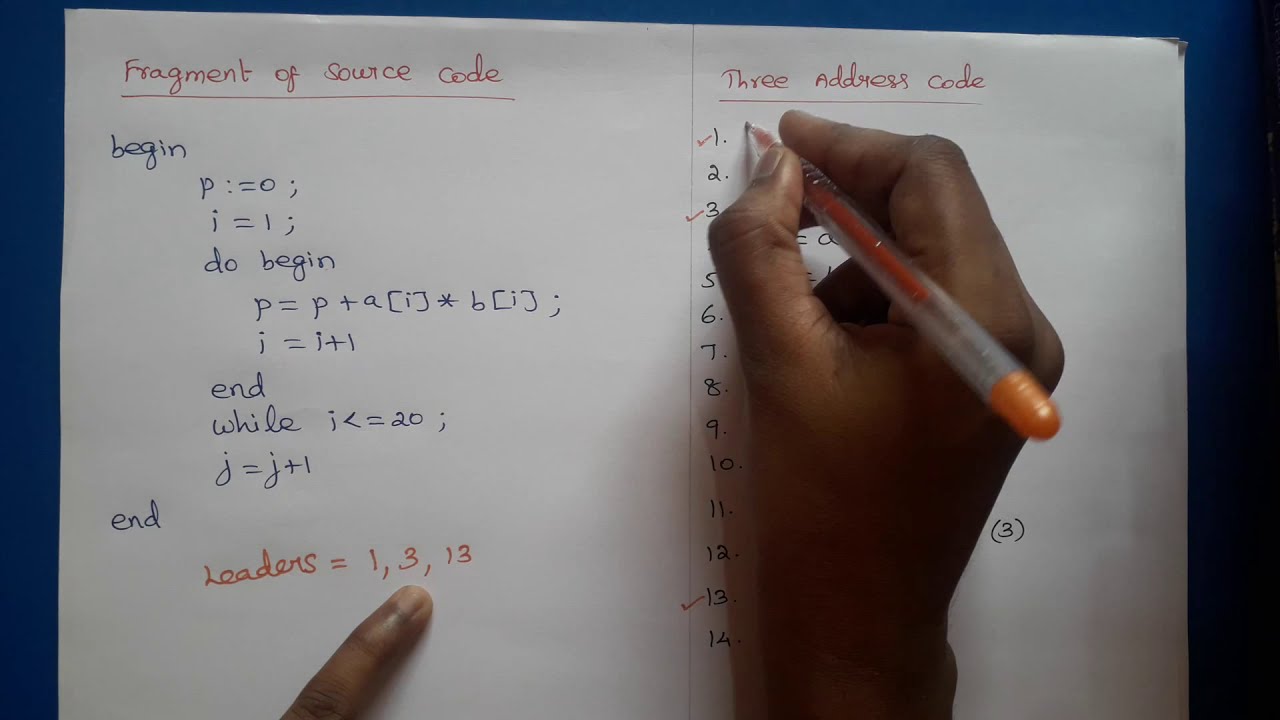 Fragment of Source Code
begin
p := 0 ;
i = 1 ;
do begin
p = p + a[i] * b[i] ;
i = i+1
end
while i <= 20 ;
j = j+1
end
Leaders = 1, 3, 13
Three Address Code
1.
2.
3
= a
5 =
6.
7.
8.
9.
10.
11.
(3)
12.
13.
14.